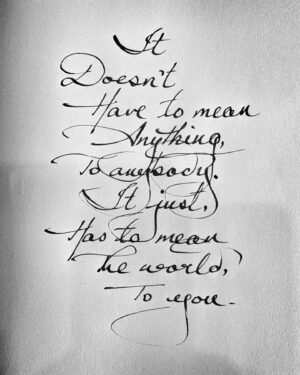 It
Doesn't
Have to mean
Anything,
To anybody.
It just,
Has to mean
The world,
To you.